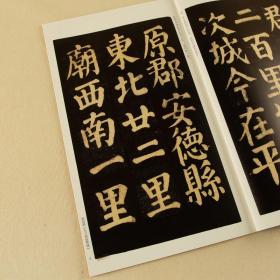 郡
二百里
次城今在平
原郡安德縣
東北廿二里
廟西南一里